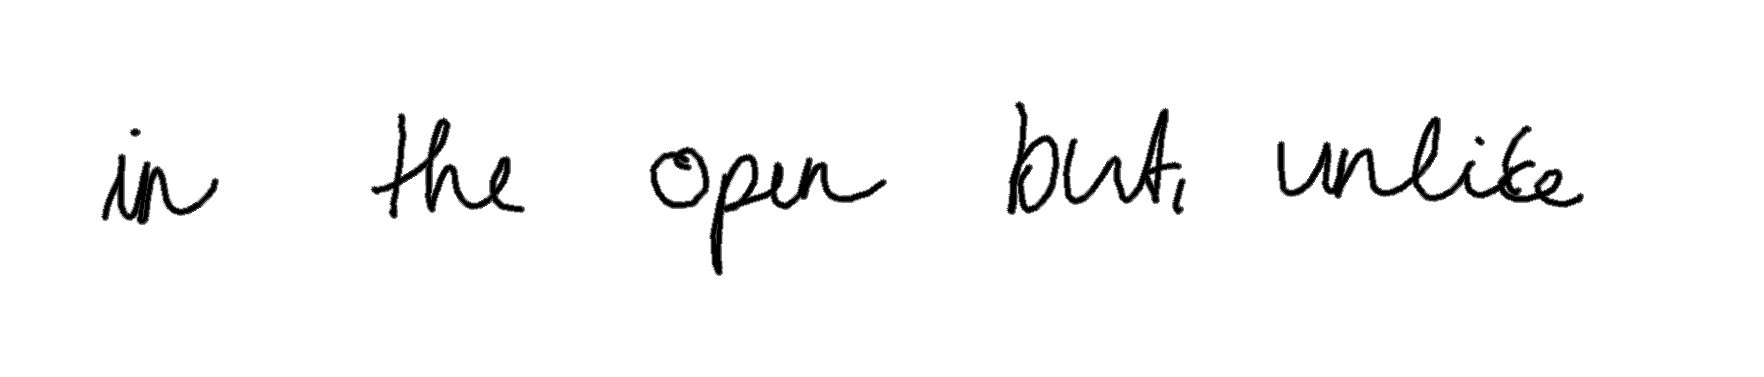 in the open but, unlike